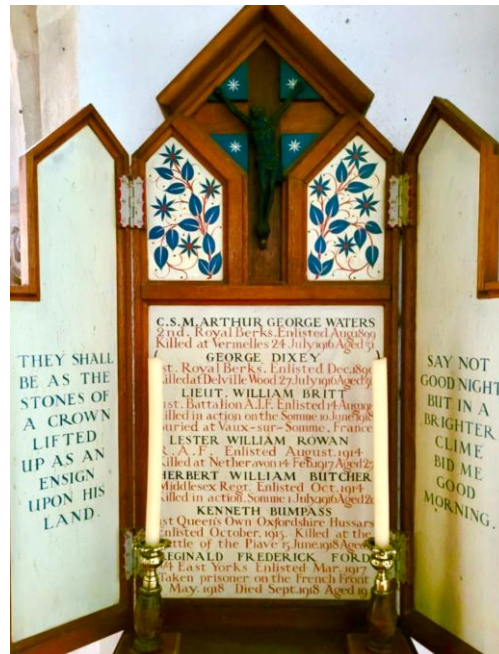 THEY SHALL
BE AS THE
STONES OF
A CROWN
LIFTED
UP AS AN
ENSIGN
UPON HIS
LAND.
C.S.M. ARTHUR GEORGE WATERS
2nd. Royal Berks. Enlisted Aug. 1899
Killed at Vermelles 24 July 1916 Aged
GEORGE DIXEY
st. Royal Berks. Enlisted Dec.
Killed at Delville Wood 27 July 1916 Aged
LIEUT. WILLIAM BRITT
st. Battalion A.I.F. Enlisted 14 Aug.
Killed in action on the Somme 10 June 1918
Buried at Vaux-sur-Somme, France
LESTER WILLIAM ROWAN
R.A.F. Enlisted August. 1914
Killed at Netheravon 14 Feb. 1917 Aged
HERBERT WILLIAM BUTCHER
Middlesex Regt. Enlisted Oct. 1914
Killed in action. Somme 1 July 1916 Aged
KENNETH BUMPASS
st Queen's Own Oxfordshire Hussars
Enlisted October. 1915. Killed at the
Battle of the Piave 15 June 1918 Aged
REGINALD FREDERICK FORD
/4 East Yorks Enlisted Mar. 1917
Taken prisoner on the French Front
May. 1918 Died Sept. 1918 Aged 19
SAY NOT
GOOD NIGHT
BUT IN A
BRIGHTER
CLIME
BID ME
GOOD
MORNING.